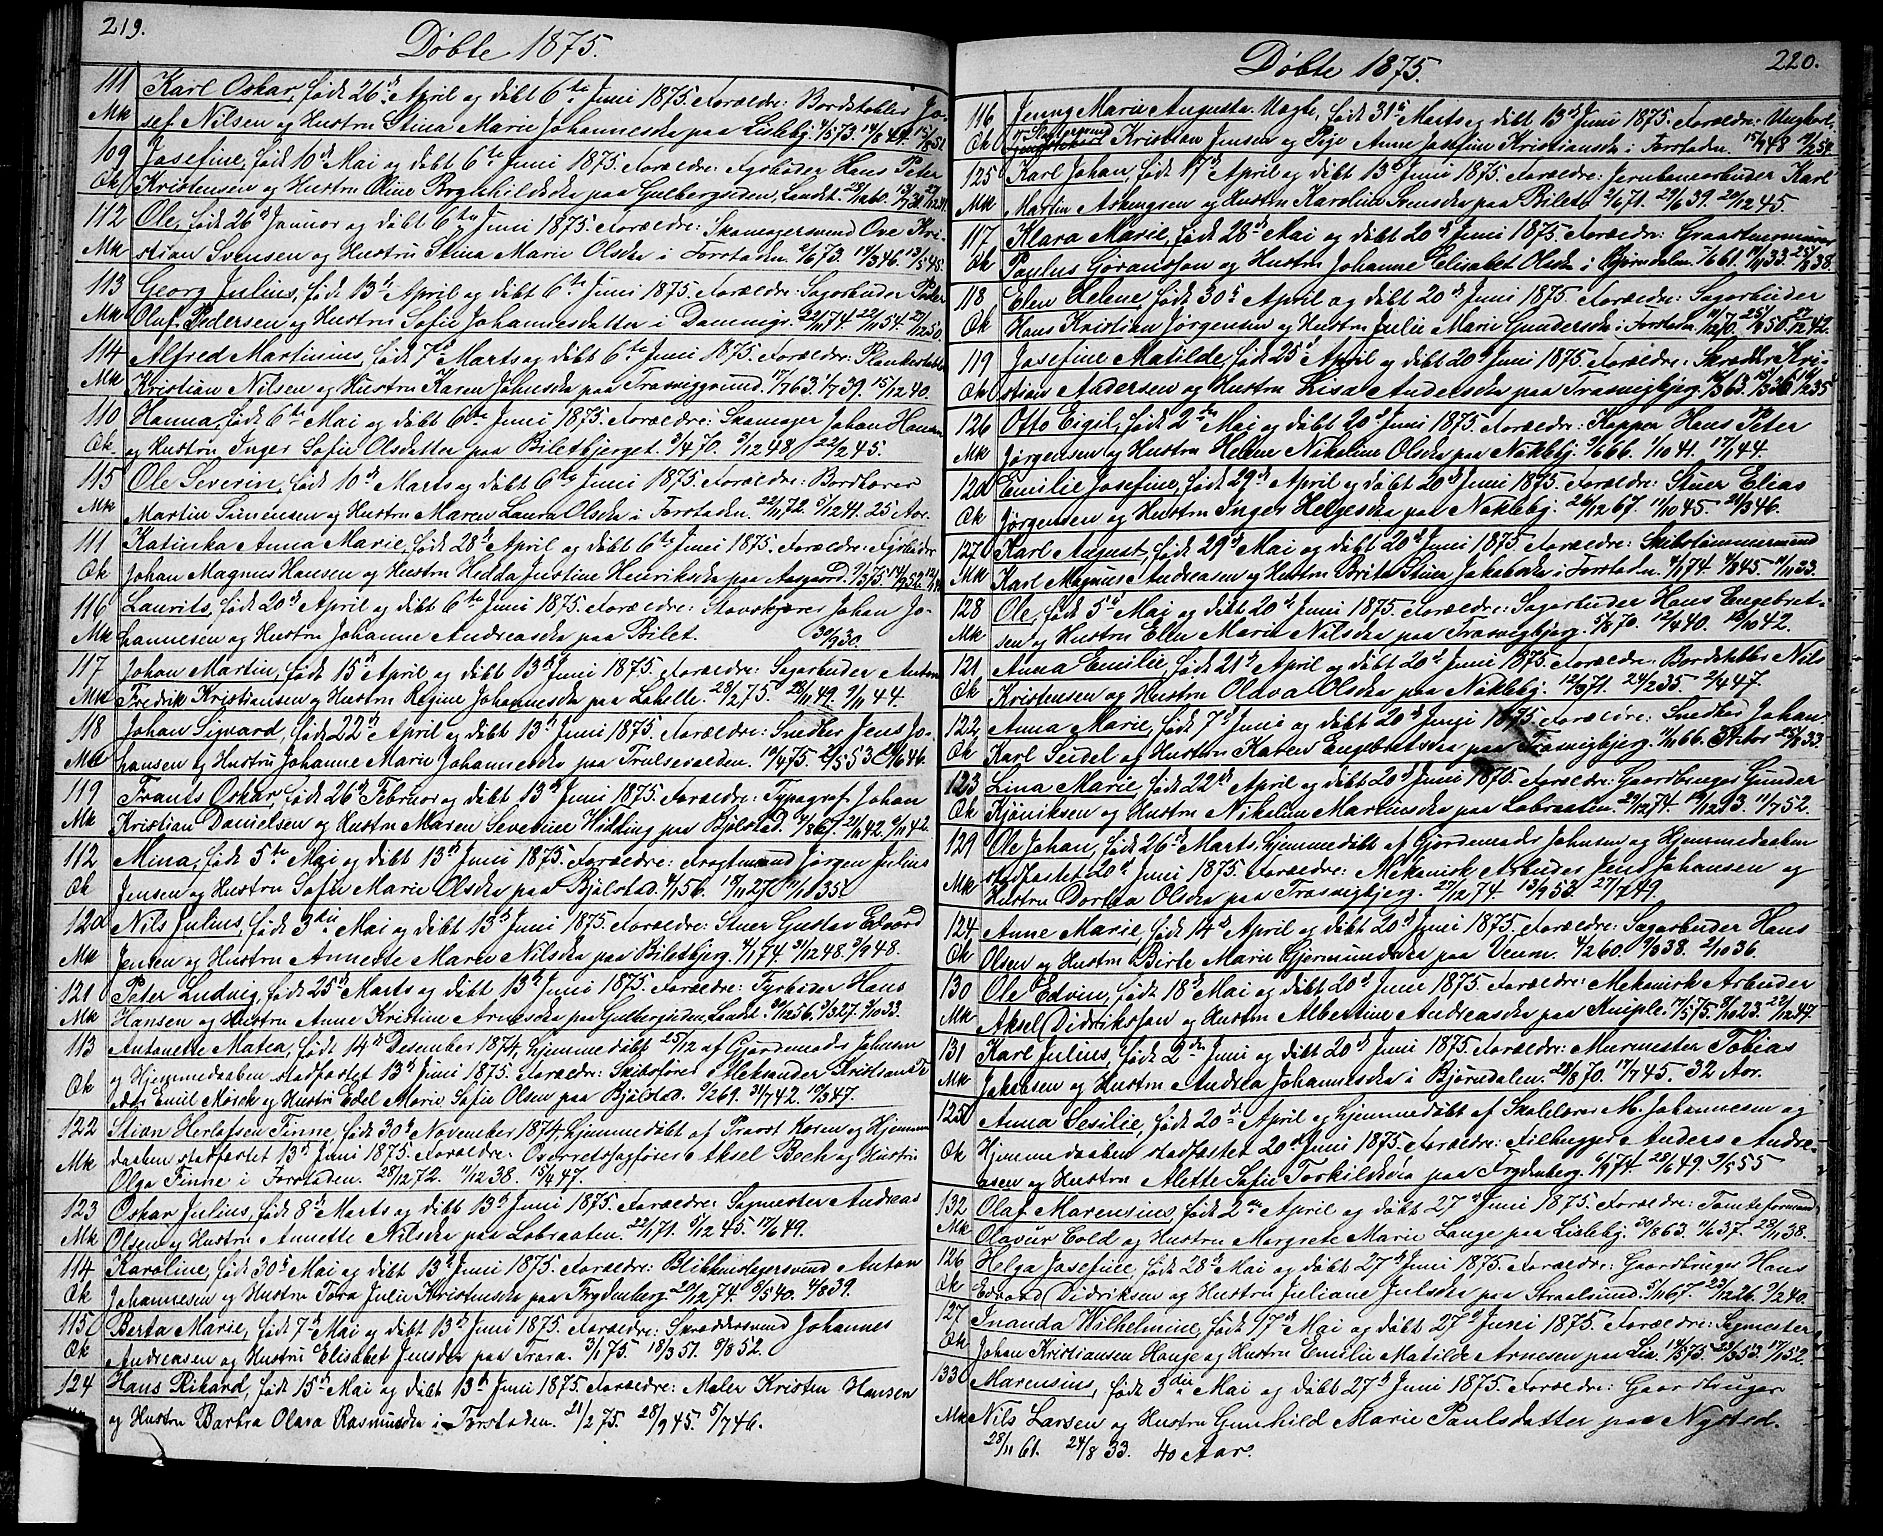 219.
Døbte 1875.
111 Karl Oskar, født 26de April og døbt 6te Juni 1875. Forældre: Bordstabler Jo-
Mk sef Nilsen og Hustru Stina Marie Johanneske paa Lisleby.
109 Josefine, født 10de Mai og døbt 6te Juni 1875. Forældre: Fyrbøder Hans Peter
Qk Kristensen og Hustru Oline paa Gulbergsiden, Landet.
112 Ole, født 26de Januar og døbt 6te Juni 1875. Forældre: Skomagersvend Ove Kri-
Mk stian Svensen og Hustru Stina Marie Olsdtr i Forstaden. 2/6 73.
113 Georg Julius, født 13de April og døbt 6te Juni 1875. Forældre: Sagarbeider Peder
Mk Oluf Pedersen og Hustru Sofie Johannesdatter i Dammyr.
114 Alfred Martinius, født 7de Marts og døbt 6te Juni 1875. Forældre:
Mk Kristian Nilsen og Hustru Karen paa Trosviggrund. 17/7 63. 1/7 39. 15/12 40.
110 Hanna, født 6te Mai og døbt 6te Juni 1875. Forældre: Skomager Johan Hansen
Qk og Hustru Inger Sofie Olsdatter paa Biletbjerget. 3/4 70. 3/12 48. 22/2 45.
115 Ole Severin, født 10de Marts og døbt 6te Juni 1875. Forældre:
Mk Martin Simensen og Hustru Maren Laura Olsdtr i Forstaden. 22/11 72. 5/12 41. 25 Aar.
111 Katinka Anna Marie, født 28de April og døbt 6te Juni 1875. Forældre:
Qk Johan Magnus Hansen og Hustru Hedda Justine Henriksdtr paa Aasgaard.
116 Laurits, født 20de April og døbt 6te Juni 1875. Forældre: Johan Jo-
Mk hannesen og Hustru Johanne Andreasdtr paa Bilet. 30/9 30.
117 Johan Martin, født 15de April og døbt 13de Juni 1875. Forældre: Sagarbeider Anton
Mk Fredrik Kristiansen og Hustru Regine Johannesdtr paa Lahelle. 28/2 75. 29/11 49. 9/11 44.
118 Johan Sigvard, født 22de April og døbt 13de Juni 1875. Forældre: Snedker Jens Jo-
Mk hansen og Hustru Johanne Marie Johannesdtr paa 19/4 75. 2/5 53.
119 Frants Oskar, født 26de Februar og døbt 13de Juni 1875. Forældre: Typograf Johan
Mk Kristian Danielsen og Hustru Maren Severine Hidding paa Bjølstad. 4/8 67. 21/6 42. 9/11 42.
112 Mina, født 5te Mai og døbt 13de Juni 1875. Forældre: Fragtmand Jørgen Julius
Qk Jensen og Hustru Sofie Marie Olsdtr paa Bjølstad. 4/1 56. 18/11 27.
120 Nils Julius, født 3die Mai og døbt 13de Juni 1875. Forældre: Stuer Gustav Edvard
Mk Jensen og Hustru Annette Marie Nilsdtr paa Biletbjerg. 4/1 74. 31/12 48. 3/9 48.
121 Peter Ludvig, født 25de Marts og døbt 13de Juni 1875. Forældre: Hans
Mk Hansen og Hustru Anne Kristine Arnesdtr paa Gulbergsiden, Landet. 30/12 56. 3/3 27. 3/10 33.
113 Antonette Matea, født 14de Desember 1874, hjemmedøbt 25/12 af Gjordemoder Johnsen
og Hjemmedaaben stadfæstet 13de Juni 1875. Forældre: Skibsfører Aleksander Kristian
Qk Emil Mosch og Hustru Edel Marie Sofie Olsen paa Bjølstad. 9/2 69. 31/7 42. 19/3 47.
122 Stian Herlofsen Finne, født 30de November 1874, hjemmedøbt af Provst Koren og Hjemme
Mk daaben stadfæstet 13de Juni 1875. Forældre: Overretssagfører Aksel Bech og Hustru
Olga Finne i Forstaden. 28/12 72. 11/12 38. 15/4 47.
123 Oskar Julius, født 8de Marts og døbt 13de Juni 1875. Forældre: Sagmester Andreas
Mk Olsen og Hustru Annette Nilsdtr paa Labraaten. 22/1 71. 5/12 45. 17/6 49.
114 Karoline, født 30de Mai og døbt 13de Juni 1875. Forældre: Blikkenslagersvend Anton
Qk Johannesen og Hustru Tora Julie Kristensdtr paa Frydenberg. 20/12 74. 8/5 40. 4/8 39.
115 Berta Marie, født 7de Mai og døbt 13de Juni 1875. Forældre: Skræddersvend Johannes
Qk Andreasen og Hustru Elisabet Jensdtr paa Trara. 3/1 75. 18/3 51. 9/8 52.
124 Hans Rikard, født 15de Mai og døbt 13de Juni 1875. Forældre: Maler Kristen Hansen
og Hustru Barbra Olava Rasmusdtr i Forstaden. 21/2 75. 28/9 45. 5/7 46.
220.
Døbte 1875.
116 Jenny Marie Augusta, Uægte, født 31te Marts og døbt 13de Juni 1875. Forældre: Ungkarl
Qk Kristian Jensen og Pige Anne Josefine Kristiansdtr i Forstaden.
125 Karl Johan, født 17de April og døbt 13de Juni 1875. Forældre: Jernbanearbeider Karl
Mk Martin Askengsen og Hustru Karoline Svensdtr paa Bilet. 2/6 71. 29/6 39. 20/12 45.
117 Klara Marie, født 28de Mai og døbt 20de Juni 1875. Forældre: Graastensmurer
Qk Paulus Gøransson og Hustru Johanne Elisabet Olsdtr i Bjørndalen.
118 Elen Helene, født 30te April og døbt 20de Juni 1875. Forældre: Sagarbeider
Qk Hans Kristian Jørgensen og Hustru Julie Marie Gundersdtr i Forstaden.
119 Josefine Matilde, født 25de April og døbt 20de Juni 1875. Forældre: Skrædder Kri-
Qk stian Andersen og Hustru Lisa Andersdtr paa Trosvigbjerg.
126 Otto Eigil, født 2den Mai og døbt 20de Juni 1875. Forældre: Kopper Hans Peter
Mk Jørgensen og Hustru Helene Nikoline Olsdtr paa Nøkleby. 9/6 66. 1/10 41. 17/1 44.
120 Emilie Josefine, født 29de April og døbt 20de Juni 1875. Forældre: Stuer Elias
Qk Jørgensen og Hustru Inger Helgesdtr paa Nøkleby. 26/12 67. 11/10 45. 21/3 46.
127 Karl August, født 29de Mai og døbt 20de Juni 1875. Forældre: Skibstømmermand
Mk Karl Magnus Andreasen og Hustru Brita Stina Jakobsdtr i Forstaden.
128 Ole, født 5te Mai og døbt 20de Juni 1875. Forældre: Sagarbeider Hans Engebret-
Mk sen og Hustru Ellen Marie Nilsdtr paa Trosvigbjerg. 5/8 70. 12/4 40. 10/10 42.
121 Anna Emilie, født 21de April og døbt 20de Juni 1875. Forældre: Bordstabler Nils
Qk Kristensen og Hustru Oldva Olsdtr paa Nøkleby. 12/3 71. 24/2 35. 2/4 47.
122 Anna Marie, født 7de Juni og døbt 20de Juni 1875. Forældre: Snedker Johan
Qk Karl Seidel og Hustru Karen Engebretsdtr paa Trosvigbjerg.
123 Lina Marie, født 22de April og døbt 20de Juni 1875. Forældre: Gaardbruger Gunder
Qk Kjøniksen og Hustru Nikoline Martinsdtr paa Labraaten. 29/12 74.
129 Ole Johan, født 26de Marts, hjemmedøbt af Gjordemoder Johnsen og Hjemmedaaben
Mk stadfæstet 20de Juni 1875. Forældre: Mekanisk Arbeider Jens Johansen og
Hustru Dortea Olsdtr paa Trosvigbjerg. 27/12 74. 13/9 53. 27/7 49.
124 Anne Marie, født 14de April og døbt 20de Juni 1875. Forældre: Sagarbeider Hans
Qk Olsen og Hustru Birte Marie Gjermundsdtr paa Veum. 4/2 60. 9/9 38. 2/10 36.
130 Ole Edvin, født 18de Mai og døbt 20de Juni 1875. Forældre: Mekanisk Arbeider
Mk Aksel Didriksson og Hustru Albertine Andreasdtr paa Kniple.
131 Karl Julius, født 2den Juni og døbt 20de Juni 1875. Forældre: Murmester Tobias
Mk Jakobsen og Hustru Andrea Johannesdtr i Bjørndalen. 29/8 70. 17/7 45. 32 Aar.
125 Anna Sesilie, født 20de April og hjemmedøbt af Skolelærer M. Johannesen og
Qk Hjemmedaaben stadfæstet 20de Juni 1875. Forældre: Filhugger Anders Andre-
asen og Hustru Alette Sofie Torkildsdtr paa Frydenberg. 6/9 74. 28/6 49. 9/5 55
132 Olaf Marensius, født 2den April og døbt 27de Juni 1875. Forældre: Tomteformand
Mk Olavur Eold og Hustru Margrete Marie Lange paa Lisleby. 20/8 63. 11/6 37. 28/11 38.
126 Helga Josefine, født 28de Mai og døbt 27de Juni 1875. Forældre: Gaardbruger Hans
Qk Edvard Didriksen og Hustru Juliane Julsdtr paa Straalsund. 5/11 67. 22/12 26. 9/2 40.
127 Inanda Wilhelmine, født 17de Mai og døbt 27de Juni 1875. Forældre: Sagmester
Qk Johan Kristiansen Hauge og Hustru Emilie Matilde Arnesen paa Lie.
133 Marensius, født 3die Mai og døbt 27de Juni 1875. Forældre: Gaardbruger
Mk Nils Larsen og Hustru Gunhild Marie Paulsdatter paa Nysted.
28/11 61. 24/8 33. 40 Aar.